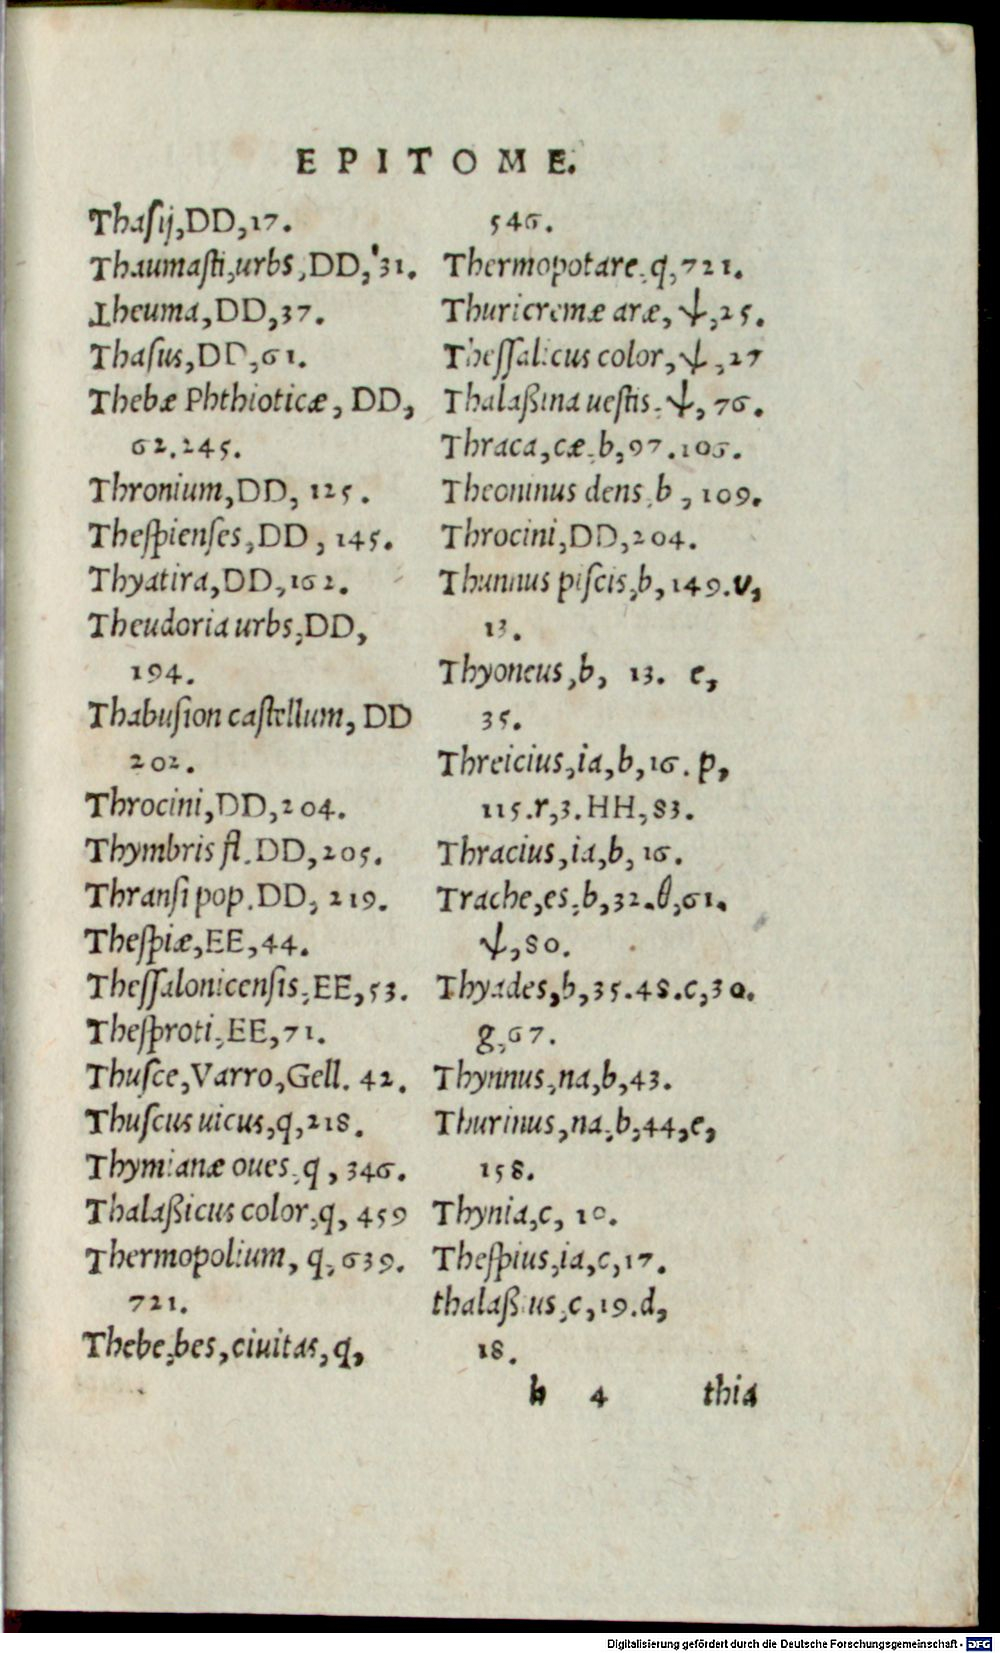 EPITOME.
Thaſij,DD,17.
Thaumaſti,urbs,DD,31.
Theuma,DD,37.
Thaſus,DD,61.
Thebæ Phthioticæ, DD,
62.245.
Thronium,DD, 125.
Theſpienſes,DD, 145.
Thyatira,DD,162.
Theudoria urbs,DD,
194.
Thabuſion caſtellum, DD
202.
Throcini,DD,204.
Thymbris fl.DD,205.
Thranſi pop.DD, 219.
Theſpiæ,EE,44.
Theſſalonicenſis,EE,53.
Theſproti,EE,71.
Thuſce,Varro,Gell. 42.
Thuſcus uicus,q,218.
Thymianæ oues,q, 346.
Thalaßicus color,q, 459
Thermopolium, q,639.
721.
Thebe,bes,ciuitas,q,
546.
Thermopotare,q,721.
Thuricremæ aræ, ψ,25.
Theſſalicus color,ψ,27
Thalaßina ueſtis,ψ, 76.
Thraca,cæ,b,97.106.
Theoninus dens,b, 109.
Throcini,DD,204.
Thunnus piſcis,b,149.v,
13.
Thyoneus,b, 13. e,
35.
Threicius,ia,b,16. p,
115.r,3.HH,83.
Thracius,ia,b, 16.
Trache,es,b,32.θ,61.
ψ,80.
Thyades,b,35.48.c,30.
g,67.
Thynnus,na,b,43.
Thurinus,na,b,44,e,
158.
Thynia,c, 10.
Theſpius,ia,c,17.
thalaßius,c,19.d,
18.
h 4 thia
Digitalisierung gefördert durch die Deutsche Forschungsgemeinschaft - DFG